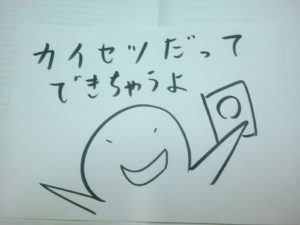 カイセツだって
できちゃうよ